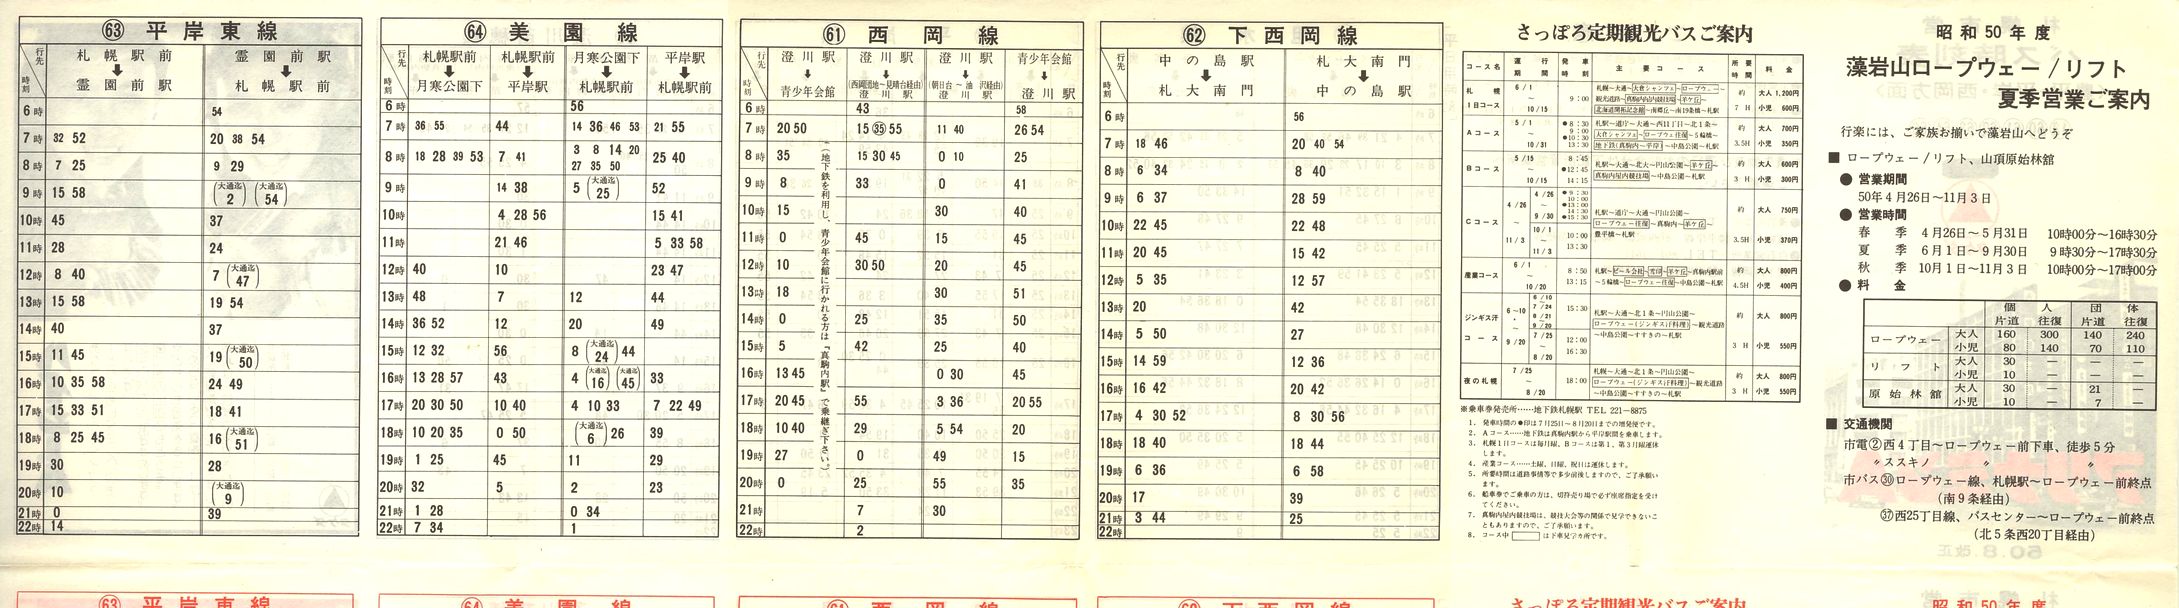 ㊿+13 平岸東線
行先 時刻
札幌駅前 ⬇ 霊園前駅
霊園前駅 ⬇ 札幌駅前
6時 54
7時 32 52 20 38 54
8時 7 25 9 29
9時 15 58 (大通迄 2) (大通迄 54)
10時 45 37
11時 28 24
12時 8 40 7 (大通迄 47)
13時 15 58 19 54
14時 40 37
15時 11 45 19 (大通迄 50)
16時 10 35 58 24 49
17時 15 33 51 18 41
18時 8 25 45 16 (大通迄 51)
19時 30 28
20時 10 (大通迄 9)
21時 0 39
22時 14
64 美園線
行先 時刻
札幌駅前 ⬇ 月寒公園下
札幌駅前 ⬇ 平岸駅
月寒公園下 ⬇ 札幌駅前
平岸駅 ⬇ 札幌駅前
6時 56
7時 36 55 44 14 36 46 53 21 55
8時 18 28 39 53 7 41 3 8 14 20 27 35 50 25 40
9時 14 38 5 (大通迄 25) 52
10時 4 28 56 15 41
11時 21 46 5 33 58
12時 40 10 23 47
13時 48 7 12 44
14時 36 52 12 20 49
15時 12 32 56 8 (大通迄 24) 44
16時 13 28 57 43 4 (大通迄 16) (大通迄 45) 33
17時 20 30 50 10 40 4 10 33 7 22 49
18時 10 20 35 0 50 (大通迄 6) 26 39
19時 1 25 45 11 29
20時 32 5 2 23
21時 1 28 0 34
22時 7 34 1
61 西岡線
行先 時刻
澄川駅 ⬇ 青少年会館
澄川駅 ⬇ (西岡団地～見晴台経由) 澄川駅
澄川駅 ⬇ (朝日台～油沢経由) 澄川駅
青少年会館 ⬇ 澄川駅
6時 43 58
7時 20 50 15 ㉟ 55 11 40 26 54
8時 35 15 30 45 0 10 25
9時 8 33 0 41
10時 15 30 40
11時 0 45 15 45
12時 10 30 50 20 45
13時 18 30 51
14時 0 25 35 50
15時 5 42 25 40
16時 13 45 0 30 45
17時 20 45 55 3 36 20 55
18時 10 40 29 5 54 20
19時 27 0 49 15
20時 0 25 55 35
21時 7 30
22時 2
(地下鉄を利用し、青少年会館に行かれる方は「真駒内駅」で乗継ぎ下さい。)
62 下西岡線
行先 時刻
中の島駅 ⬇ 札大南門
札大南門 ⬇ 中の島駅
6時 56
7時 18 46 20 40 54
8時 6 34 8 40
9時 6 37 28 59
10時 22 45 22 48
11時 20 45 15 42
12時 5 35 12 57
13時 20 42
14時 5 50 27
15時 14 59 12 36
16時 16 42 20 42
17時 4 30 52 8 30 56
18時 18 40 18 44
19時 6 36 6 58
20時 17 39
21時 3 44 25
22時
さっぽろ定期観光バスご案内
コース名 運行期間 発車時刻 主要コース 所要時間 料金
札幌1日コース 6/1～10/15 9:00 約7H 大人1,200円 小児600円
Aコース 5/1～10/31 約3.5H 大人700円 小児350円
Bコース 5/15～10/15 8:45 12:45 14:15 約3H 大人600円 小児300円
Cコース 約3.5H 大人750円 小児370円
産業コース 6/1～10/20 8:50 13:15 約4.5H 大人800円 小児400円
ジンギス汗コース 6～10・9/20 15:30 12:00 16:30 約3H 大人800円 小児550円
夜の札幌 7/25～8/20 18:00 約3H 大人800円 小児550円
※乗車券発売所……地下鉄札幌駅 TEL 221-8875
1. 発車時間の●印は7月25日～8月20日までの増発便です。
2. Aコース……地下鉄は真駒内駅から平岸駅間を乗車します。
3. 札幌1日コースは毎日曜、Bコースは第1、第3月曜運休します。
4. 産業コース……土曜、日曜、祝日は運休します。
5. 所要時間は道路事情等で多少前後しますので、ご了承願います。
6. 船車券でご乗車の方は、切符売り場で必ず座席指定を受けてください。
7. 真駒内屋内競技場は、競技大会等の関係で見学できないこともありますので、ご了承願います。
8. コース中 は下車見学カ所です。
昭和50年度
藻岩山ロープウェー/リフト
夏季営業ご案内
行楽には、ご家族お揃いで藻岩山へどうぞ
■ ロープウェー/リフト、山頂原始林館
● 営業期間
50年4月26日～11月3日
● 営業時間
春季 4月26日～5月31日 10時00分～16時30分
夏季 6月1日～9月30日 9時30分～17時30分
秋季 10月1日～11月3日 10時00分～17時00分
● 料金
個人 団体
片道 往復 片道 往復
ロープウェー 大人 160 300 140 240
小児 80 140 70 110
リフト 大人 30 — — —
小児 10 — — —
原始林館 大人 30 — 21 —
小児 10 — 7 —
■ 交通機関
市電②西4丁目～ロープウェー前下車、徒歩5分
〃 ススキノ 〃 〃
市バス㉚ロープウェー線、札幌駅～ロープウェー前終点
(南9条経由)
㊲西25丁目線、バスセンター～ロープウェー前終点
(北5条西20丁目経由)
63 平岸東線
64 美園線
61 西岡線
62 下西岡線
さっぽろ定期観光バスご案内
昭和50年度